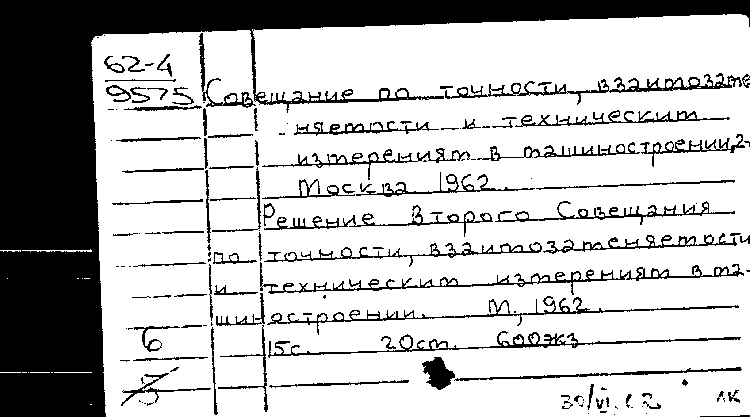 62-4
9575 Совещание по точности, взаимозаме
няемости и техническим
измерениям в машиностроении, 2-
Москва 1962.
Решение Второго Совещания
по точности, взаимозаменяемости
и техническим измерениям в ма-
шиностроении. М, 1962.
6 15с. 20см. 600экз
5
30/VI.62 ЛК